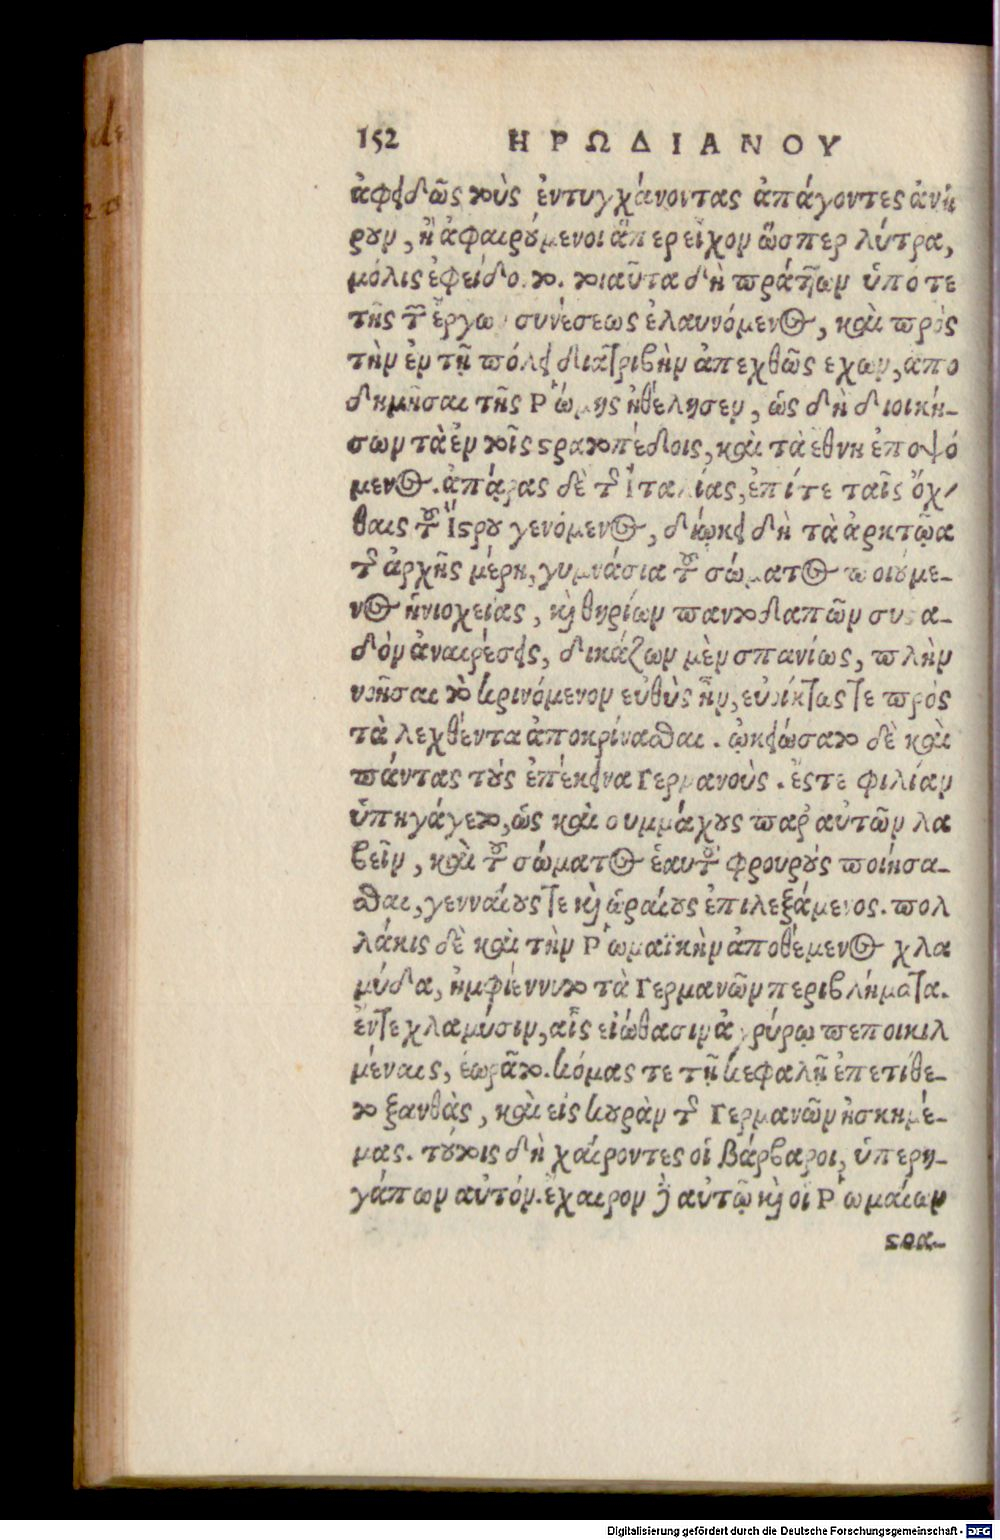 152 ΗΡΩΔΙΑΝΟΥ
ἀφειδῶς τοὺς ἐντυγχάνοντας ἀπάγοντες ἀνή
ρουν, ἢ ἀφαιρούμενοι ἅπερ εἶχον ὥσπερ λύτρα,
μόλις ἐφείδοντο. τοιαῦτα δὴ πράττων ὑπό τε
τῆς τῶν ἔργων συνέσεως ἐλαυνόμενος, καὶ πρὸς
τὴν ἐν τῇ πόλει διατριβὴν ἀπεχθῶς εχων, απο
δημῆσαι τῆς Ῥώμης ἠθέλησεν, ὡς δὴ διοική-
σων τὰ ἐν τοῖς στρατοπέδοις, καὶ τὰ ἔθνη ἐποψό
μενος. ἀπάρας δὲ τῆς Ἰταλίας, ἐπί τε ταῖς ὄχ/
θαις τοῦ Ἴστρου γενόμενος, διῴκει δὴ τὰ ἀρκτῷα
τῆς ἀρχῆς μέρη, γυμνάσια τοῦ σώματος ποιούμε-
νος ἡνιοχείας, καὶ θηρίων παντοδαπῶν συστα-
δὸν ἀναιρέσεις, δικάζων μὲν σπανίως, πλὴν
νοῆσαι τὸ κρινόμενον εὐθὺς ἦν, εὐθίκτως τε πρὸς
τὰ λεχθέντα ἀποκρίνασθαι. ᾠκειώσατο δὲ καὶ
πάντας τούς ἐπέκεινα Γερμανοὺς. ἔστε φιλίαν
ὑπηγάγετο, ὡς καὶ συμμάχους παρ αὐτῶν λα
βεῖν, καὶ τοῦ σώματος ἑαυτοῦ φρουρούς ποιήσα-
σθαι, γενναίους τε καὶ ὡραίους ἐπιλεξάμενος. πολ
λάκις δὲ καὶ τὴν Ῥωμαϊκὴν ἀποθέμενος χλα
μύδα, ἠμφιέννυτο τὰ Γερμανῶν περιβλήματα.
ἐν τε χλαμύσιν, αἷς εἰώθασιν ἀργύρῳ πεποικιλ
μέναις, ἑωρᾶτο. κόμας τε τῇ κεφαλῇ ἐπετίθε-
το ξανθὰς, καὶ εἰς κουρὰν τῆς Γερμανῶν ἠσκημέ-
μας. τούτοις δὴ χαίροντες οἱ βάρβαροι, ὑπερη-
γάπων αὐτόν. ἔχαιρον δὲ αὐτῷ καὶ οἱ Ῥωμαίων
στρα-
Digitalisierung gefördert durch die Deutsche Forschungsgemeinschaft - DFG